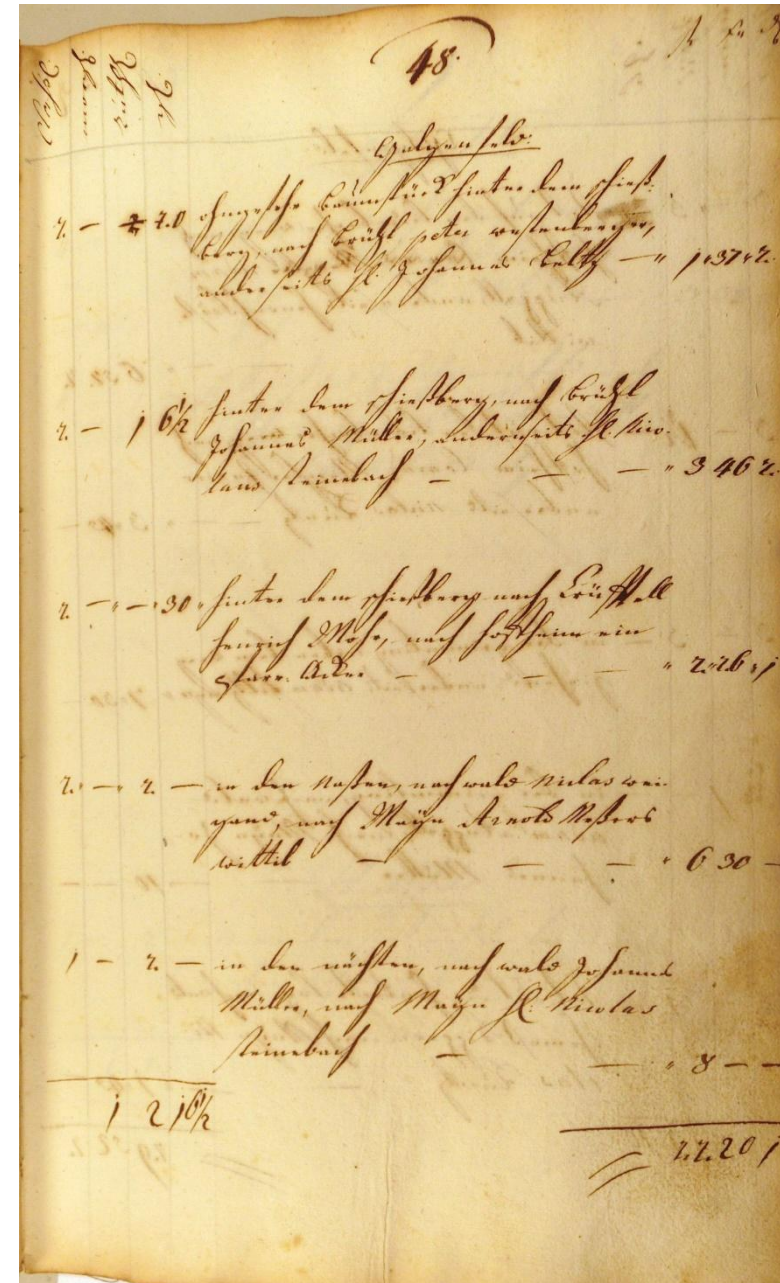 48.
Galgenfeld.
2. — 2.0 ohngefehr baumstück hinter dem schieß-
berg, nach Brühl peter westenberger,
anderseits H. Johannes beltz — " 1"37"2.
2. — 1 6½ hinter dem schießberg, nach brühl
Johannes Müller, anderseits H. Nico-
laus steinebach — — — " 3 46 2.
2. — " — " 30 " hinter dem schießberg nach
henrich Mohr, nach hofheim ein
pfarr. Acker — — — " 2."26", 1
2. " — " 2. — in den Naßen, nach wald Niclas wei-
gand, nach Mayn Arnold
wittib — — — " 6 30 —
1 — 2. — in den nächsten, nach wald Johannes
Müller, nach Mayn H. Nicolas
steinebach — — " 8 — —
1 2 16½
22. 20 1